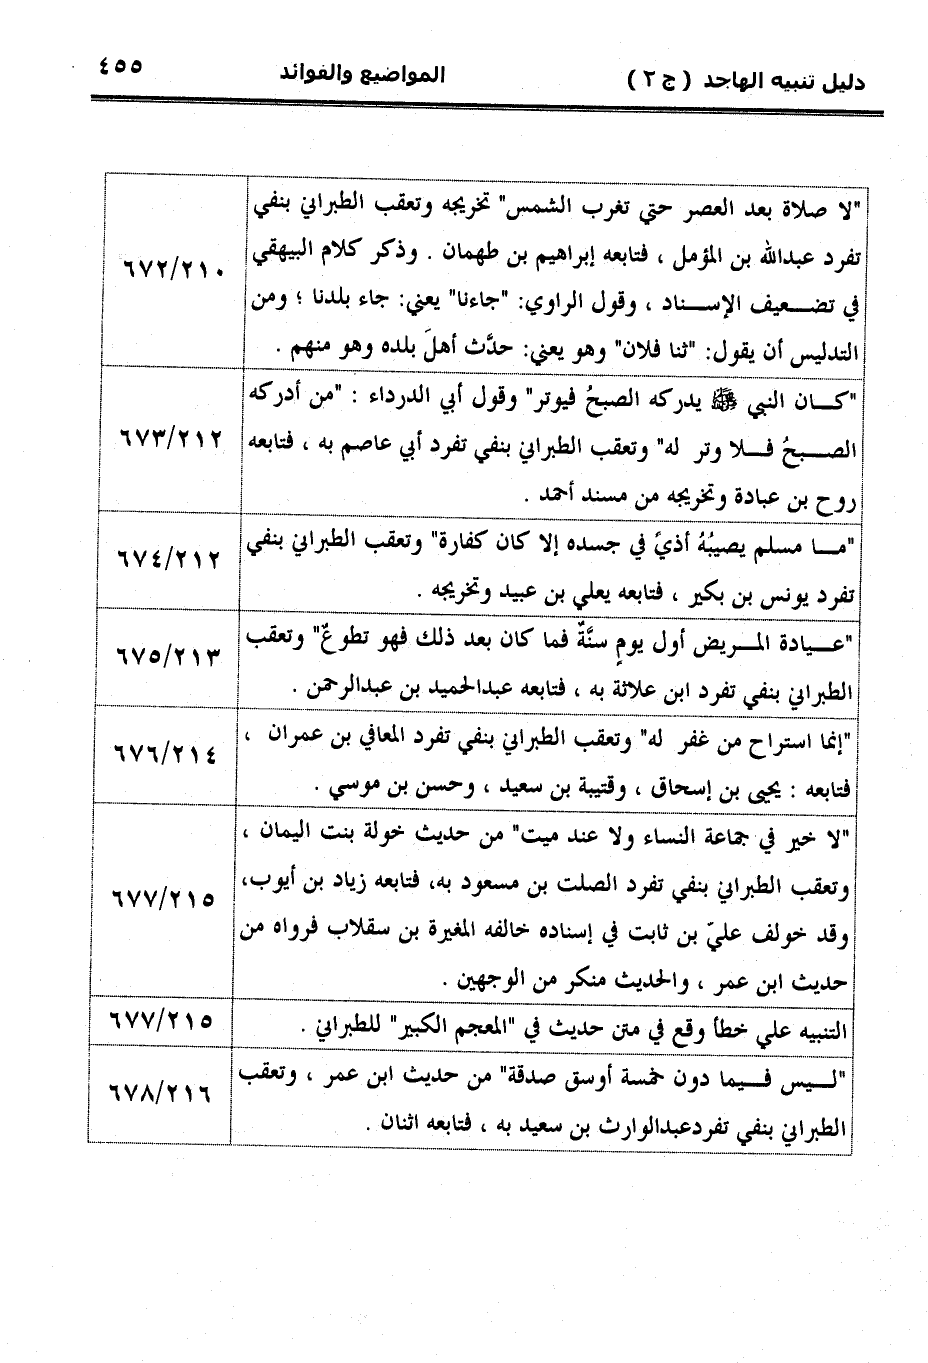 دليل تنبيه الهاجد ( ج ٢ ) المواضيع والفوائد ٤٥٥
"لا صلاة بعد العصر حتي تغرب الشمس" تخريجه وتعقب الطبراني بنفي
تفرد عبدالله بن المؤمل ، فتابعه إبراهيم بن طهمان . وذكر كلام البيهقي
٦٧٢/٢١٠
في تضعيف الإسناد ، وقول الراوي: "جاءنا" يعني: جاء بلدنا ؛ ومن
التدليس أن يقول: "ثنا فلان" وهو يعني: حدَّث أهلَ بلده وهو منهم .
"كان النبي ﷺ يدركه الصبحُ فيوتر" وقول أبي الدرداء : "من أدركه
الصبحُ فلا وتر له" وتعقب الطبراني بنفي تفرد أبي عاصم به ، فتابعه
٦٧٣/٢١٢
روح بن عبادة وتخريجه من مسند أحمد .
"ما مسلم يصيبُهُ أذيً في جسده إلا كان كفارة" وتعقب الطبراني بنفي
٦٧٤/٢١٢
تفرد يونس بن بكير ، فتابعه يعلي بن عبيد وتخريجه .
"عيادة المريض أول يومٍ سنَّةٌ فما كان بعد ذلك فهو تطوعٌ" وتعقب
٦٧٥/٢١٣
الطبراني بنفي تفرد ابن علاثة به ، فتابعه عبدالحميد بن عبدالرحمن .
"إنما استراح من غفر له" وتعقب الطبراني بنفي تفرد المعافي بن عمران ،
٦٧٦/٢١٤
فتابعه : يحيى بن إسحاق ، وقتيبة بن سعيد ، وحسن بن موسي .
"لا خير في جماعة النساء ولا عند ميت" من حديث خولة بنت اليمان ،
وتعقب الطبراني بنفي تفرد الصلت بن مسعود به، فتابعه زياد بن أيوب،
٦٧٧/٢١٥
وقد خولف عليّ بن ثابت في إسناده خالفه المغيرة بن سقلاب فرواه من
حديث ابن عمر ، والحديث منكر من الوجهين .
التنبيه علي خطأ وقع في متن حديث في "المعجم الكبير" للطبراني .
٦٧٧/٢١٥
"ليس فيما دون خمسة أوسق صدقة" من حديث ابن عمر ، وتعقب
٦٧٨/٢١٦
الطبراني بنفي تفردعبدالوارث بن سعيد به ، فتابعه اثنان .